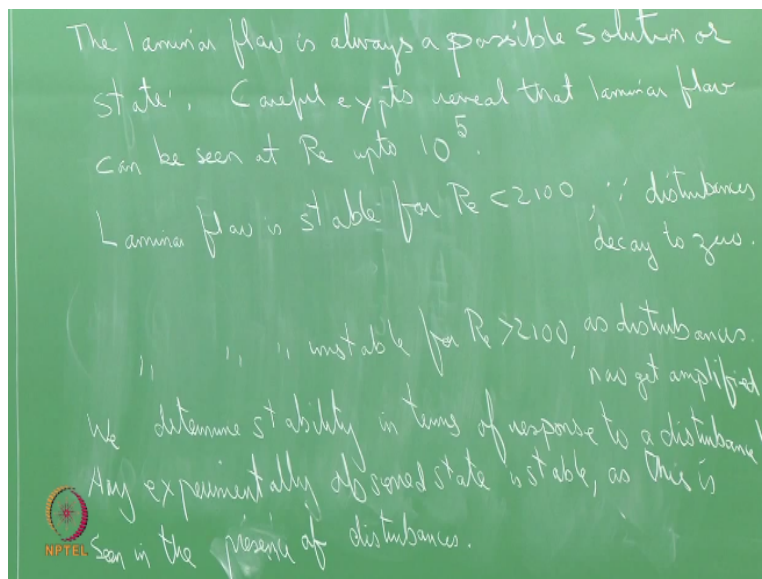 The laminar flow is always a possible solution or
state'. Careful expts reveal that laminar flow
can be seen at Re upto 10^5.
Laminar flow is stable for Re < 2100, ∵ disturbances
decay to zero.
,, ,, ,, unstable for Re > 2100, as disturbances.
now get amplified
We determine stability in terms of response to a disturbance
Any experimentally observed state is stable, as this is
seen in the presence of disturbances.
NPTEL